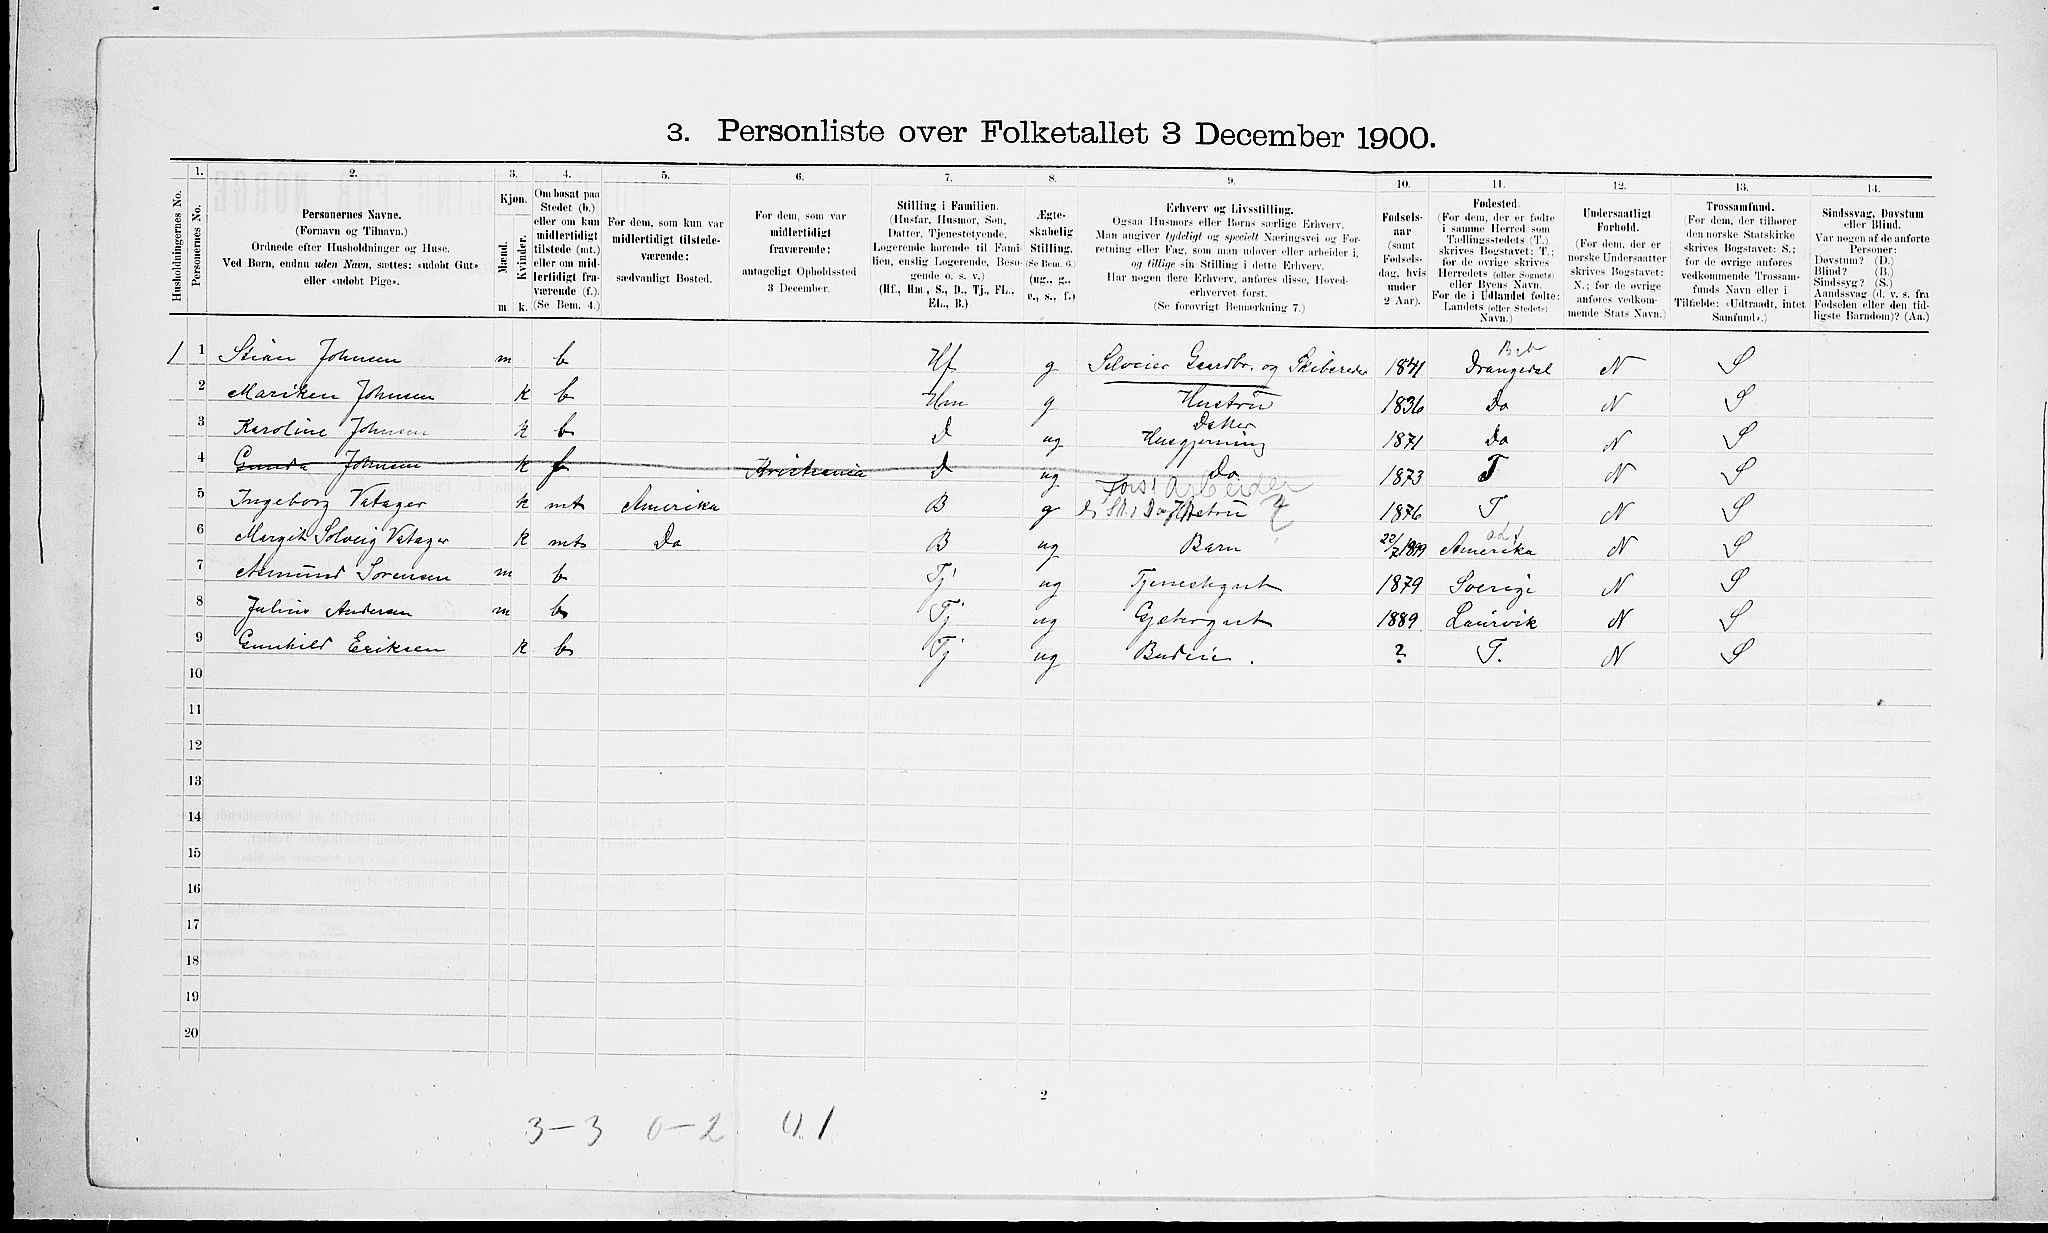 3. Personliste over Folketallet 3 December 1900.
Husholdningernes No.
1.
Personernes No.
2.
Personernes Navne.
(Fornavn og Tilnavn.)
Ordnede efter Husholdninger og Huse.
Ved Børn, endnu uden Navn, sættes: «udøbt Gut»
eller «udøbt Pige».
3.
Kjøn.
Mænd.
Kvinder.
m
k.
4.
Om bosat paa
Stedet (b.)
eller om kun
midlertidigt
tilstede (mt.)
eller om mid-
lertidigt fra-
værende (f.).
(Se Bem. 4.)
5.
For dem, som kun var
midlertidigt tilstede-
værende:
sædvanligt Bosted.
6.
For dem, som var
midlertidigt
fraværende:
antageligt Opholdssted
3 December.
7.
Stilling i Familien.
(Husfar, Husmor, Søn,
Datter, Tjenestetyende,
Logerende hørende til Fami-
lien, enslig Logerende, Besø-
gende o. s. v.)
(Hf., Hm., S., D., Tj., FL.,
EL., B.)
8.
Ægte-
skabelig
Stilling.
(Se Bem. 6.)
(ug., g.,
e., s., f.)
9.
Erhverv og Livsstilling.
Ogsaa Husmors eller Børns særlige Erhverv.
Man angiver tydeligt og specielt Næringsvei og For-
retning eller Fag, som man udøver eller arbeider i,
og tillige sin Stilling i dette Erhverv.
Har nogen flere Erhverv, anføres disse, Hoved-
erhvervet først.
(Se forøvrigt Bemærkning 7.)
10.
Fødsels-
aar
(samt
Fødsels-
dag, hvis
under
2 Aar).
11.
Fødested.
(For dem, der er fødte
i samme Herred som
Tællingsstedets (T.)
skrives Bogstavet: T.;
for de øvrige skrives
Herredets (eller Sognets)
eller Byens Navn.
For de i Udlandet fødte:
Landets (eller Stedets)
Navn.)
12.
Undersaatligt
Forhold.
(For dem, der er
norske Undersaatter
skrives Bogstavet:
N.; for de øvrige
anføres vedkom-
mende Stats Navn.)
13.
Trossamfund.
(For dem, der tilhører
den norske Statskirke
skrives Bogstavet: S.;
for de øvrige anføres
vedkommende Trossam-
funds Navn eller i
Tilfælde: «Udtraadt, intet
Samfund».)
14.
Sindssvag, Døvstum
eller Blind.
Var nogen af de anførte
Personer:
Døvstum? (D.)
Blind? (B.)
Sindssyg? (S.)
Aandssvag (d. v. s. fra
Fødselen eller den tid-
ligste Barndom)? (Aa.)
1 1 Stian Johnsen m b Hf g Selveier Gaardbr. og Skibsreder 1841 Drangedal N S
2 Mariken Johnsen k b Hm g Hustru 1836 Do N S
3 Karoline Johnsen k b D ug Datter Husgjerning 1871 Do N S
4 Gunda Johnsen k f Kristiania D ug Do 1873 T N S
Arbeider
5 Ingeborg Vatager k mt Amerika B g Hustru 1876 T N S
6 Margit Solveig Vatager k mt Do B ug Barn 22/7 1899 Amerika N S
7 Asmund Sørensen m b Tj ug Tjenestegut 1879 Sverige N S
8 Julius Andersen m b Tj ug Gjætergut 1889 Laurvik N S
9 Gunhild Eriksen k b Tj ug Budeie. ? T. N S
10
11
12
13
14
15
16
17
18
19
20
2
3-3 0-2 0.1